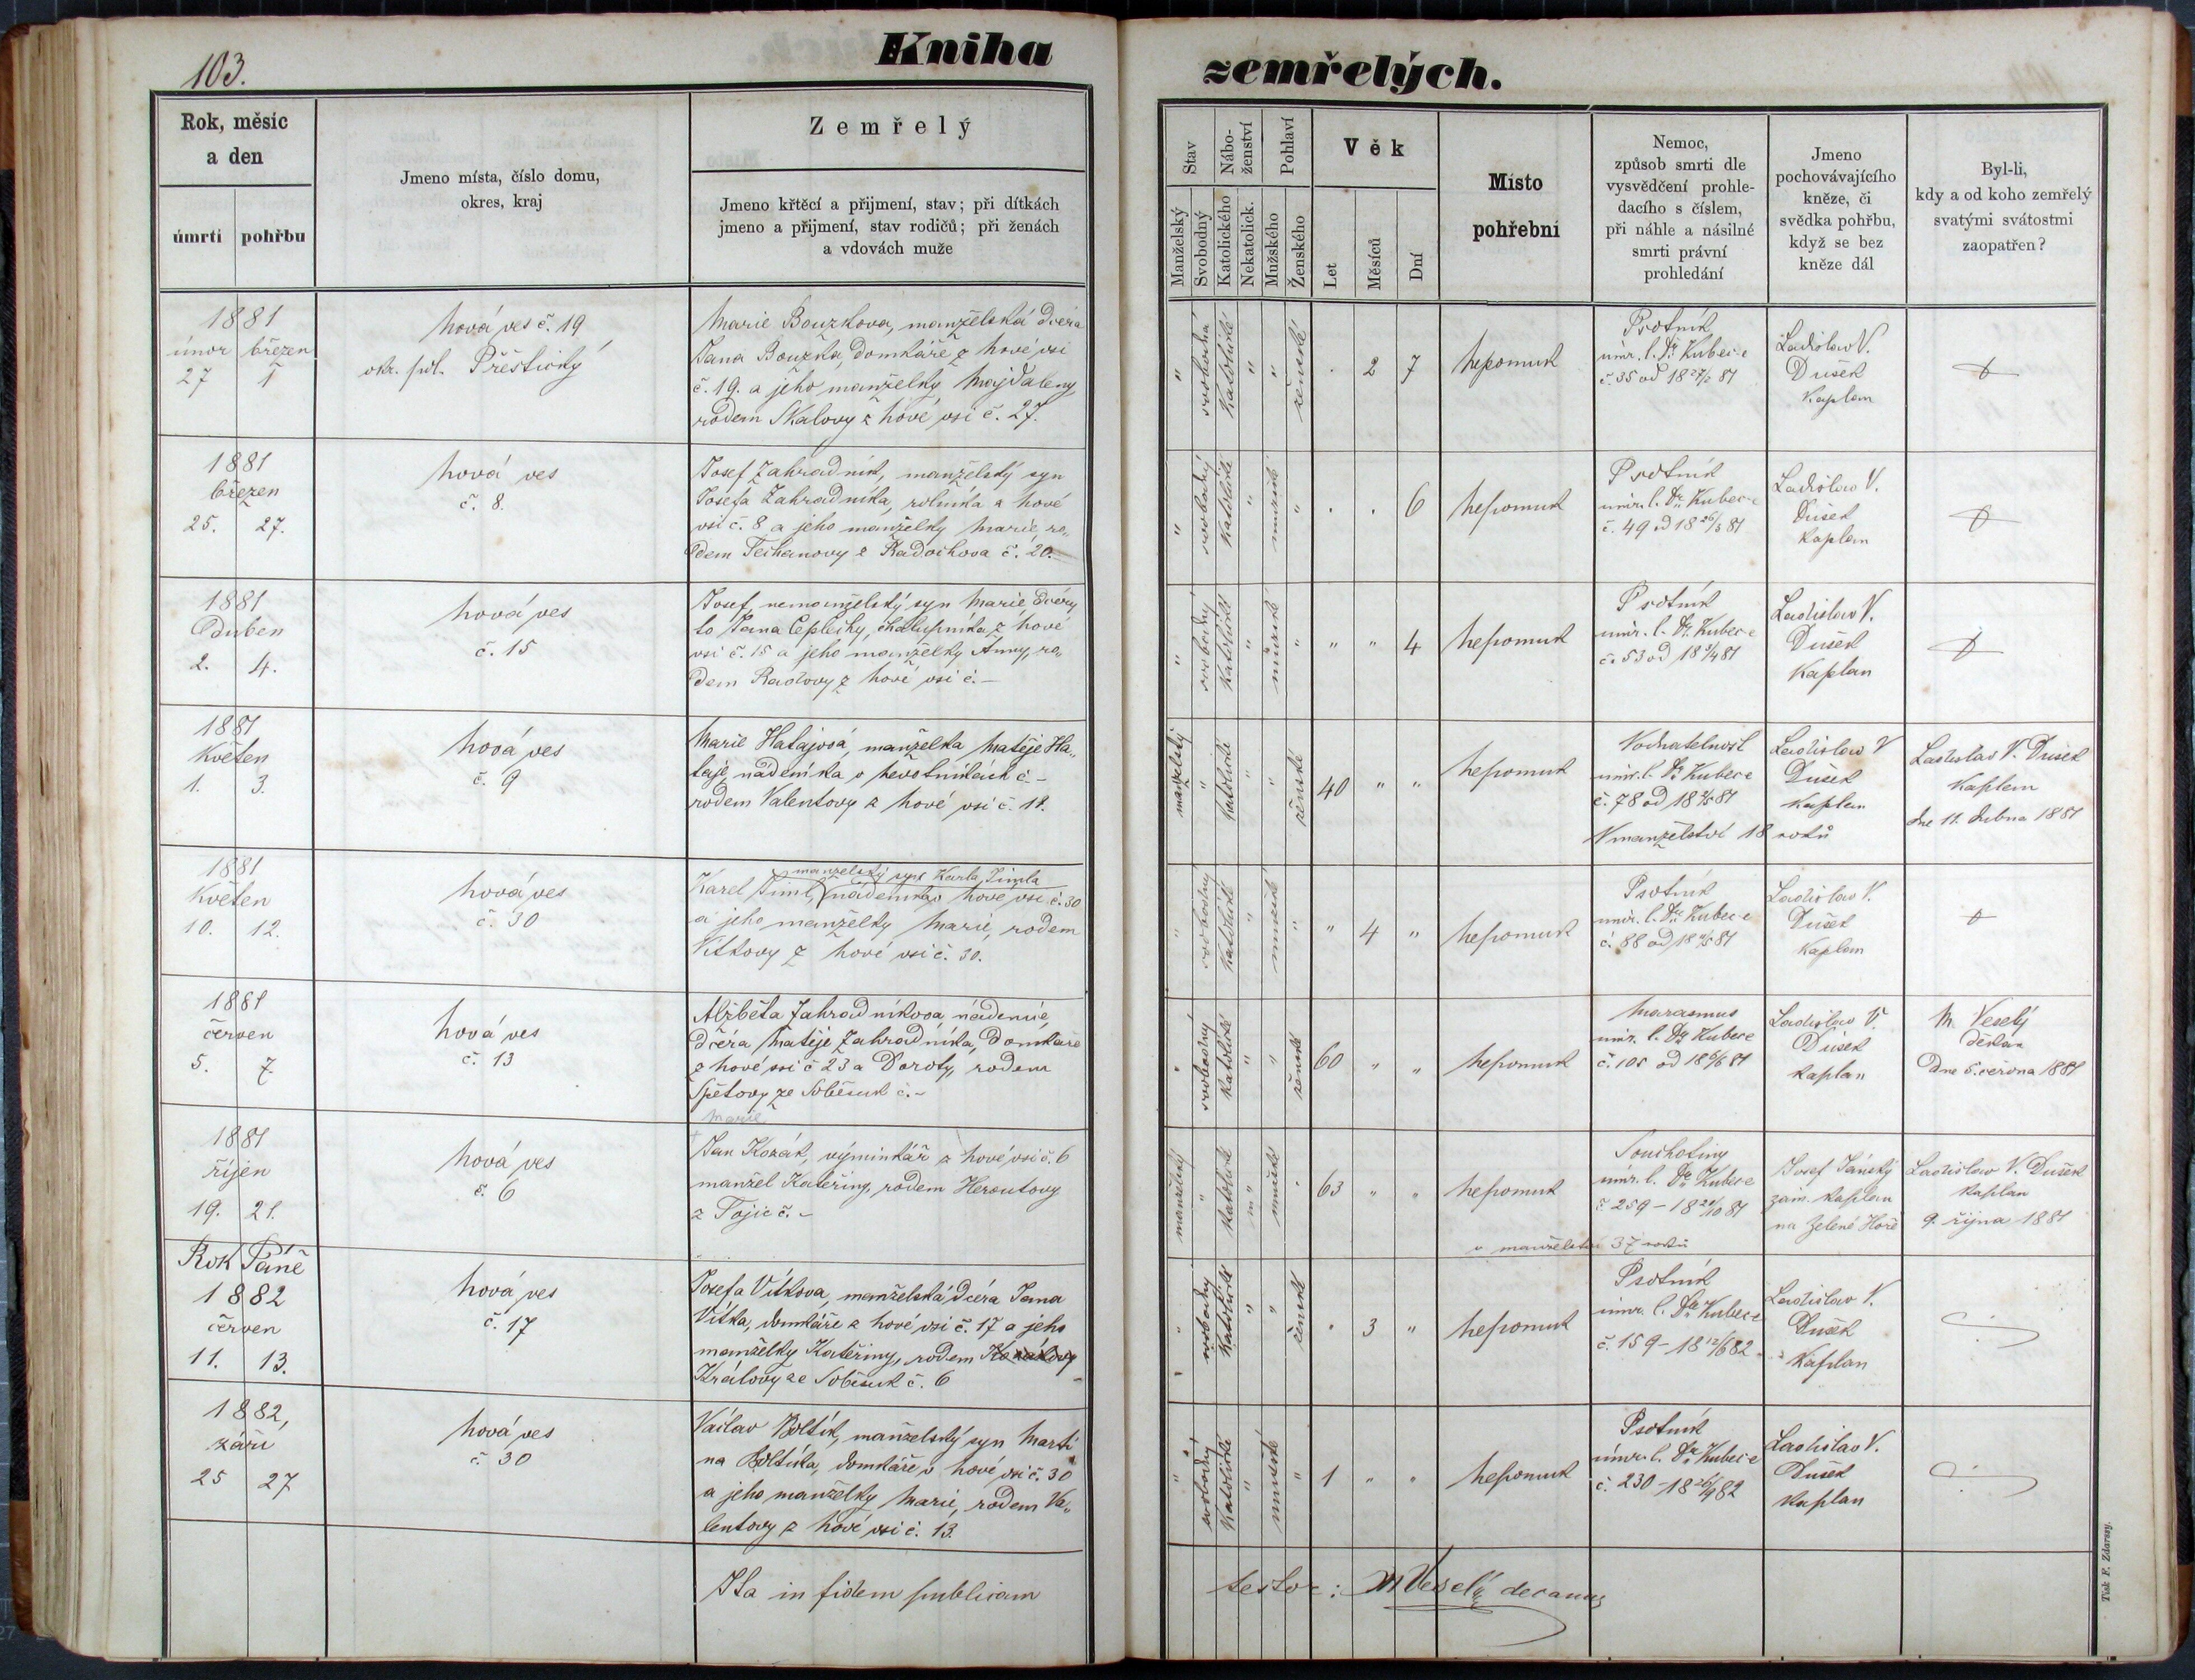 103.
Kniha zemřelých.
Rok, měsíc
a den
úmrtí pohřbu
Jmeno místa, číslo domu,
okres, kraj
Zemřelý
Jmeno křtěcí a přijmení, stav; při dítkách
jmeno a přijmení, stav rodičů; při ženách
a vdovách muže
Stav
Manželský
Svobodný
Nábo-
ženství
Katolického
Nekatolick.
Pohlaví
Mužského
Ženského
Věk
Let
Měsíců
Dní
Místo
pohřební
Nemoc,
způsob smrti dle
vysvědčení prohle-
dacího s číslem,
při náhle a násilné
smrti právní
prohledání
Jmeno
pochovávajícího
kněze, či
svědka pohřbu,
když se bez
kněze dál
Byl-li,
kdy a od koho zemřelý
svatými svátostmi
zaopatřen?
1881
únor březen
27 1
Nová ves č. 19
okr. pol. Přeštický
Marie Bouzkova, manželská dcera
Jana Bouzka, domkáře z Nové vsi
č. 19. a jeho manželky Majdaleny
rodem Skalovy z Nové vsi č. 27.
" svobodná katolické " " ženské . 2 7
Nepomuk
Psotník
úmr. l. Dr Kubece
č. 35 od 18 27/2 81
Ladislav V.
Dušek
Kaplan
1881
březen
25. 27.
Nová ves
č. 8.
Josef Zahradník, manželský syn
Josefa Zahradníka, rolníka z Nové
vsi č. 8 a jeho manželky Marie, ro„
dem z Radochova č. 20.
" svobodný katolické " mužské " . . 6
Nepomuk
Psotník
úmr. l. Dr Kubece
č. 49 od 18 26/3 81
Ladislav V.
Dušek
Kaplan
1881
Duben
2. 4.
Nová ves
č. 15
Josef, nemanželský syn Marie, dcery
to Jana Ceplechy, chalupníka z Nové
vsi č. 15 a jeho manželky Anny, ro„
dem z Nové vsi č. –
" svobodný katolické " mužské " " " 4
Nepomuk
Psotník
úmr. l. Dr. Kubece
č. 53 od 18 81
Ladislav V.
Dušek
Kaplan
1881
Květen
1. 3.
Nová ves
č. 9
Marie Hatajová, manželka Matěje Ha„
taje, nádeníka v č –
rodem Valentovy z Nové vsi č.
manželský " katolické " " ženské 40 " "
Nepomuk
Vodnatelnost
úmr. l. Dr Kubece
č. 78 od 18 81
V manželství 18 roků
Ladislav V
Dušek
Kaplan
Ladislav V. Dušek
Kaplan
dne 11. dubna 1881
1881
Květen
10. 12.
Nová ves
č. 30
manželský syn Karla Šimla
Karel Šiml, nádeníka Nové vsi č. 30
a jeho manželky Marie, rodem
Vítkovy z Nové vsi č. 30.
" svobodný katolické " mužské " " 4 "
Nepomuk
Psotník
úmr. l. Dr Kubece
č. 88 od 18 81
Ladislav V.
Dušek
Kaplan
1881
červen
5. 7
Nová ves
č. 13
Alžběta Zahradníkova nádenice,
dcera Matěje Zahradníka, domkáře
z Nové vsi č 23 a Doroty, rodem
Špětovy ze Soběsuk č. –
" svobodný katolické " " ženské 60 " "
Nepomuk
Marasmus
úmr. l. Dr Kubece
od 18 6/6 81
Ladislav V.
Dušek
Kaplan
M. Veselý
děkan
Dne 5. června 1881
Marie
1881
říjen
19. 21.
Nová ves
č. 6
Jan Kozák, výminkář z Nové vsi č. 6
manžel Kateřiny, rodem Heroutovy
z Tojic č. –
manželský " katolické " mužské " 63 " "
Nepomuk
Souchotiny
úmr. l. Dr Kubece
č 259 – 18 20/10 81
v manželství 37 roků
Josef Jánský
zám. Kaplan
na Zelené Hoře
Ladislav V. Dušek
Kaplan
9. října 1881
Rok Páně
1882
červen
11. 13.
Nová ves
č. 17
Josefa Vítkova, manželská dcéra Jana
Vítka, domkáře z Nové vsi č. 17 a jeho
manželky Kateřiny, rodem Kozákovy
Královy ze Soběsuk č. 6
" svobodný katolické " " ženské . 3 "
Nepomuk
Psotník
úmr. l. Dr Kubece
č. 159 – 18 12/6 82
Ladislav V.
Dušek
Kaplan
1882,
září
25 27
Nová ves
č. 30
Václav Boltík, manželský syn Marti
na Boltíka, domkáře v Nové vsi č. 30
a jeho manželky Marie, rodem Va„
lentovy z Nové vsi č. 13.
" svobodný katolické " mužské " 1 " "
Nepomuk
Psotník
úmr. l. Dr Kubece
č. 230 – 18 26/9 82
Ladislav V.
Dušek
Kaplan
Ita in fidem publicam
testor: M Veselý decanus
Tisk F. Zdarssy.